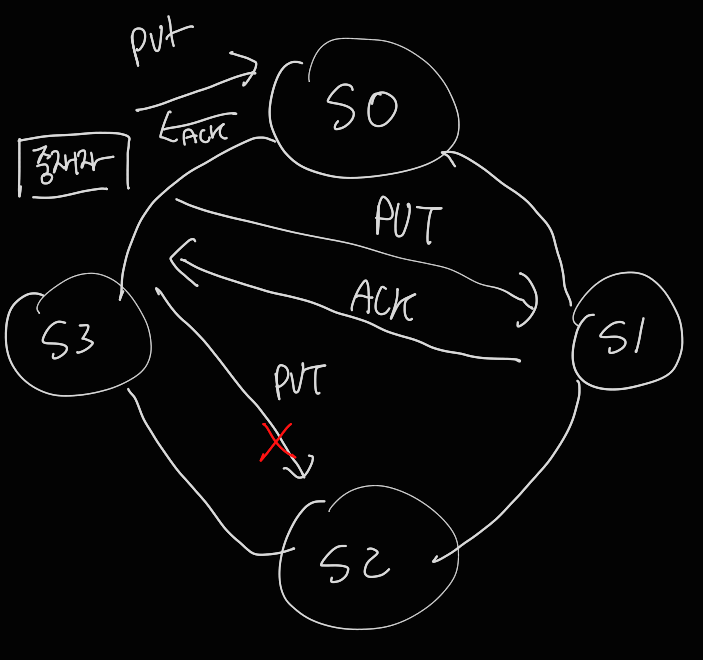 PUT
S0
ACK
중재자
PUT
ACK
S3
S1
PUT
S2